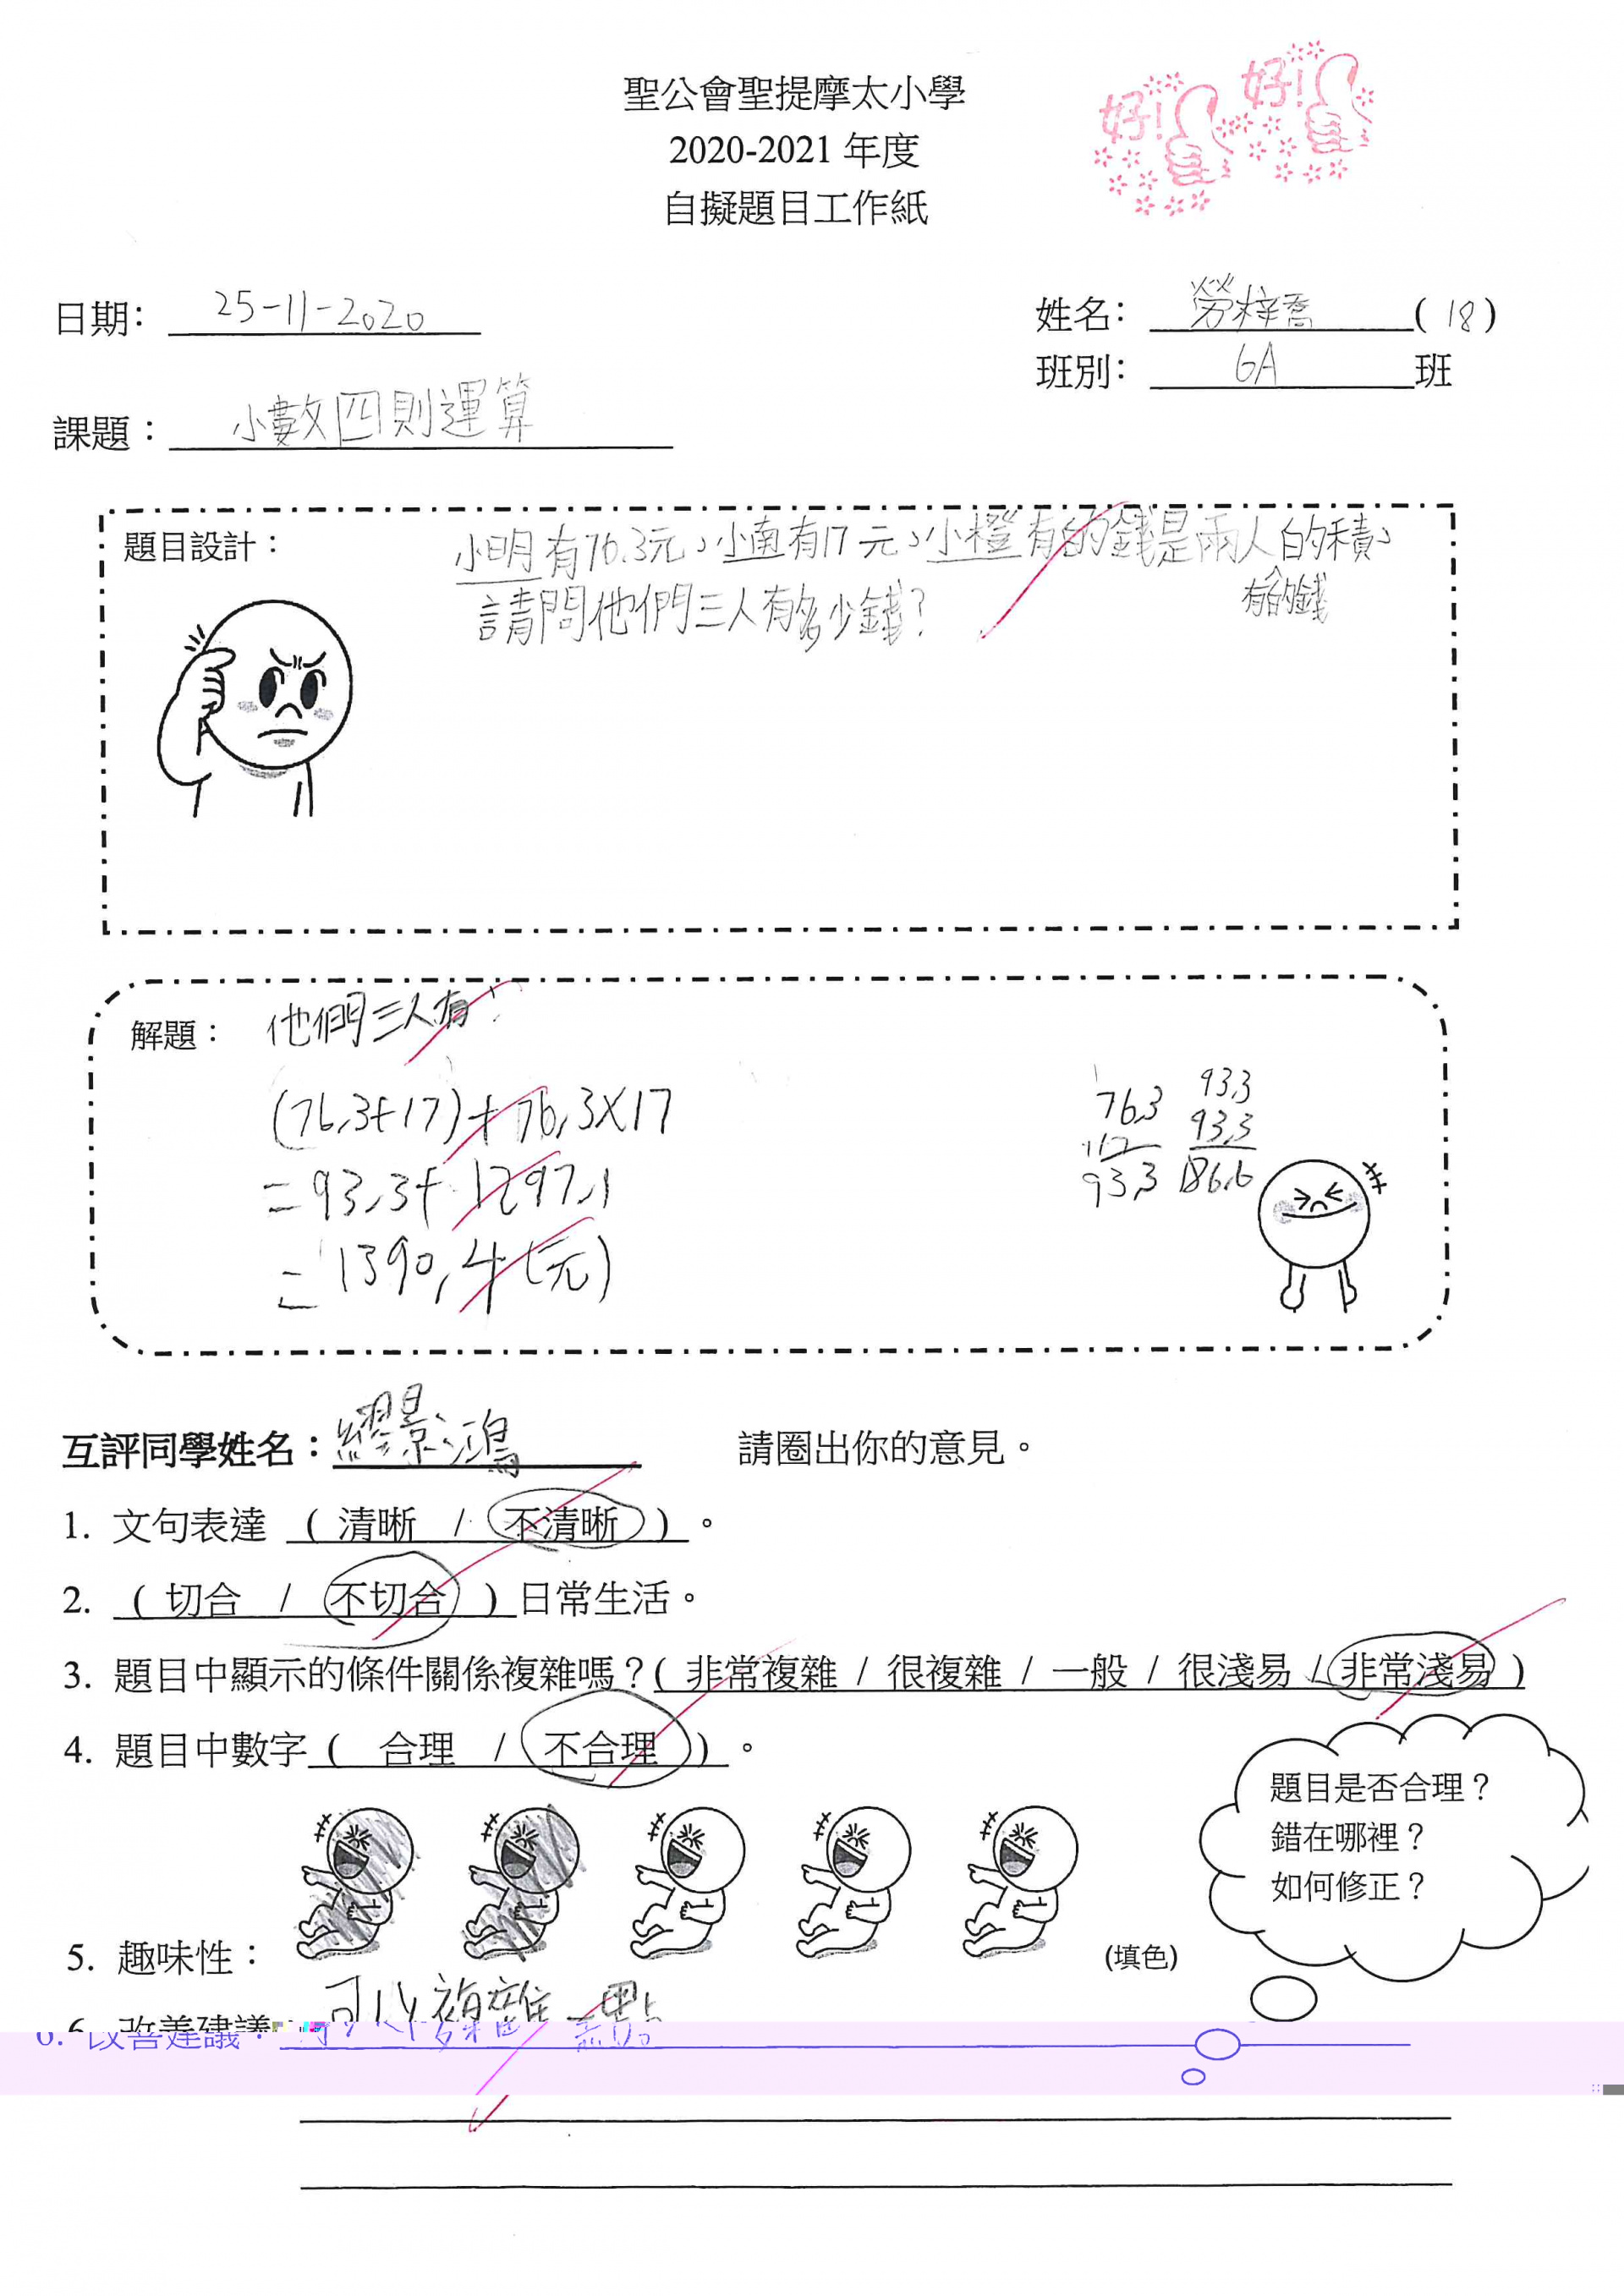 聖公會聖提摩太小學
2020-2021 年度
自擬題目工作紙
好! 好!
日期: 25-11-2020
姓名: 勞梓喬 (18)
班別: 6A 班
課題: 小數四則運算
題目設計:
小明有76.3元,小南有17元,小橙有的錢是兩人的積,
有的錢
請問他們三人有多少錢?
解題: 他們三人有:
(76.3+17)+76.3×17
=93.3+1297.1
=1390.4(元)
76.3
17
93.3
93.3
93.3
186.6
互評同學姓名: 繆景鴻 請圈出你的意見。
1. 文句表達 ( 清晰 / 不清晰 ) 。
2. ( 切合 / 不切合 ) 日常生活。
3. 題目中顯示的條件關係複雜嗎?( 非常複雜 / 很複雜 / 一般 / 很淺易 / 非常淺易 )
4. 題目中數字 ( 合理 / 不合理 ) 。
題目是否合理?
錯在哪裡?
如何修正?
5. 趣味性: (填色)
6. 改善建議: 可以複雜一點